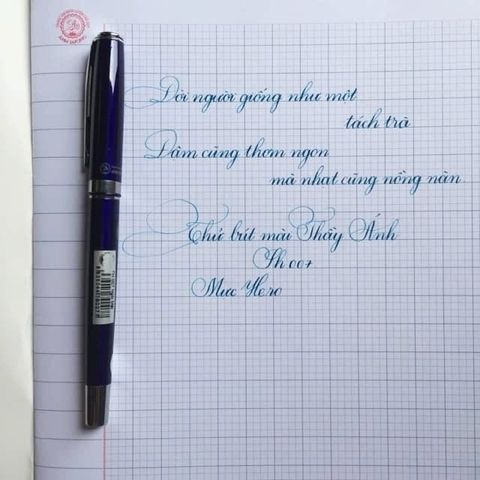 Đời người giống như một
tách trà
Dẫm cũng thơm ngon
mà nhạt cũng nồng nàn
Thử bút mài Thầy Ánh
Sh 007
Mực Hero